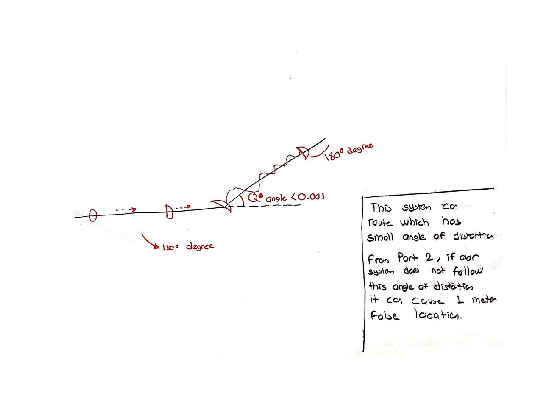 180° degree
Q° angle <0.001
180° degree
This system
route which has
small angle of distortion
From Port 2, if our
system does not follow
this angle of distortion
it can cause 1 meter
false location.